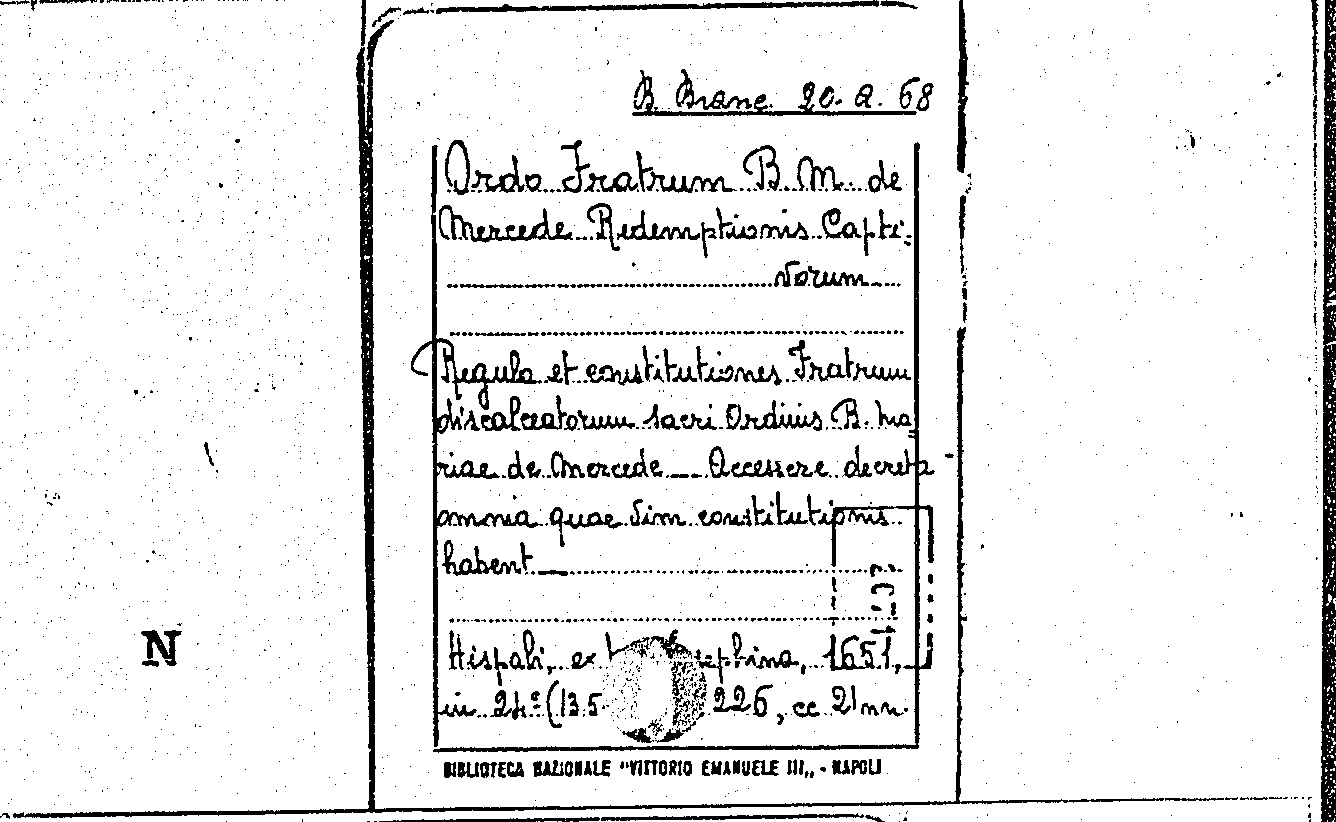 B. Branc. 20. a. 68
Ordo Fratrum B. M. de
Mercede Redemptionis Capti-
vorum
Regula et constitutiones Fratrum
discalceatorum sacri Ordinis B. Ma-
riae de Mercede _ Accessere decreta
omnia quae vim constitutionis
habent _
Hispali, ex 1651,
in 24º (13.5 226, cc 21 nn.
BIBLIOTECA NAZIONALE "VITTORIO EMANUELE III„ - NAPOLI
N